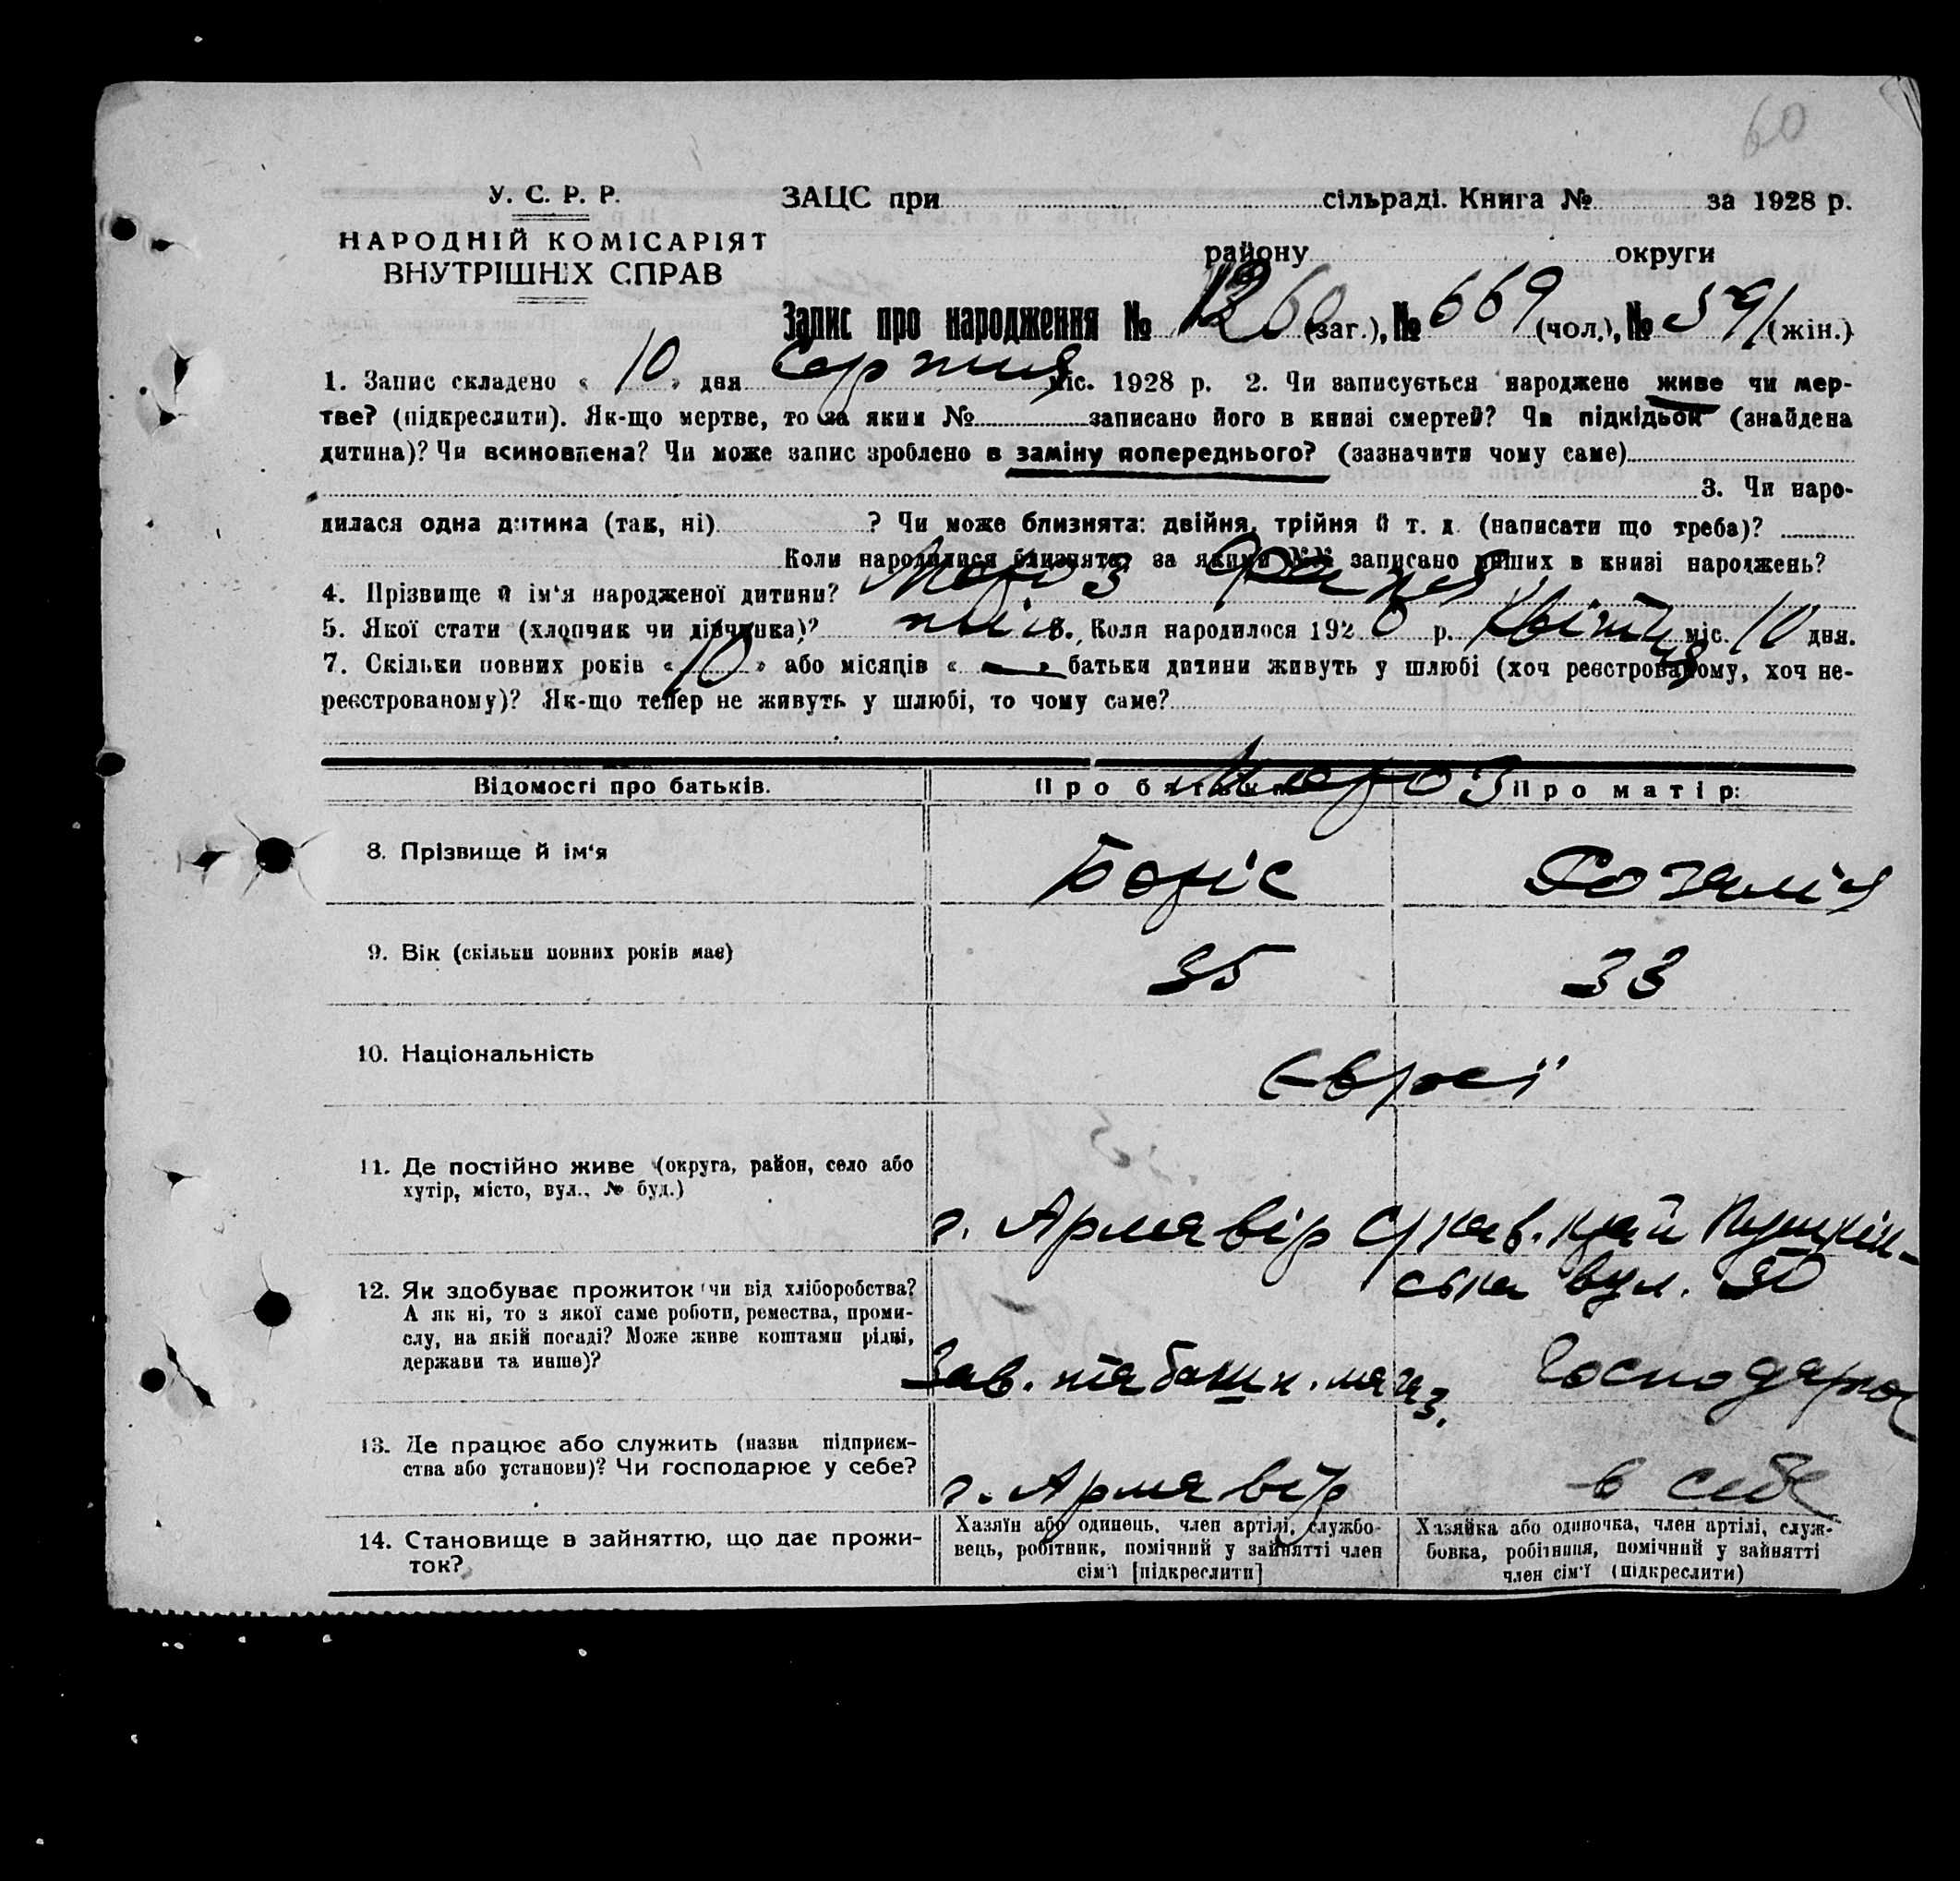 60
У. С. Р. Р.
НАРОДНІЙ КОМІСАРІЯТ
ВНУТРІШНІХ СПРАВ
ЗАЦС при сільраді. Книга № за 1928 р.
району округи
Запис про народження № 1260 (заг.), № 669 (чол.), № 591 (жін.)
1. Запис складено « 10 » дня Серпня міс. 1928 р. 2. Чи записується народжене живе чи мер-
тве? (підкреслити). Як-що мертве, то за яким № записано його в книзі смертей? Чи підкідьок (знайдена
дитина)? Чи всиновлена? Чи може запис зроблено в заміну попереднього? (зазначити чому саме)
3. Чи наро-
дилася одна дитина (так, ні) ? Чи може близнята: двійня, трійня й т. д. (написати що треба)?
Коли народилися близнята, за якими №№ записано инших в книзі народжень?
4. Прізвище й ім‘я народженої дитини? Мороз
5. Якої стати (хлопчик чи дівчинка)? 6. Коли народилося 1928 р. Квітня міс. 10 дня.
7. Скільки повних років « 10 » або місяців « — » батьки дитини живуть у шлюбі (хоч реєстрованому, хоч не-
реєстрованому)? Як-що тепер не живуть у шлюбі, то чому саме?
Відомості про батьків. Про батька: Мороз Про матір:
8. Прізвище й ім‘я Боріс Розалія
9. Вік (скільки повних років має) 35 33
10. Національність Євреї
11. Де постійно живе (округа, район, село або
хутір, місто, вул., № буд.)
г. Армавір С/кав. край Пушкін-
ська вул. 50
12. Як здобуває прожиток (чи від хліборобства?
А як ні, то з якої саме роботи, ремества, проми-
слу, на якій посаді? Може живе коштами рідні,
держави та инше)?
Зав. табачн. магаз. Господарює
13. Де працює або служить (назва підприєм-
ства або установи)? Чи господарює у себе?
г. Армавір в себе
14. Становище в зайняттю, що дає прожи-
ток?
Хазяїн або одинець, член артілі, службо-
вець, робітник, помічний у зайнятті член
сім‘ї [підкреслити]
Хазяйка або одиночка, член артілі, служ-
бовка, робітниця, помічний у зайнятті
член сім‘ї (підкреслити)